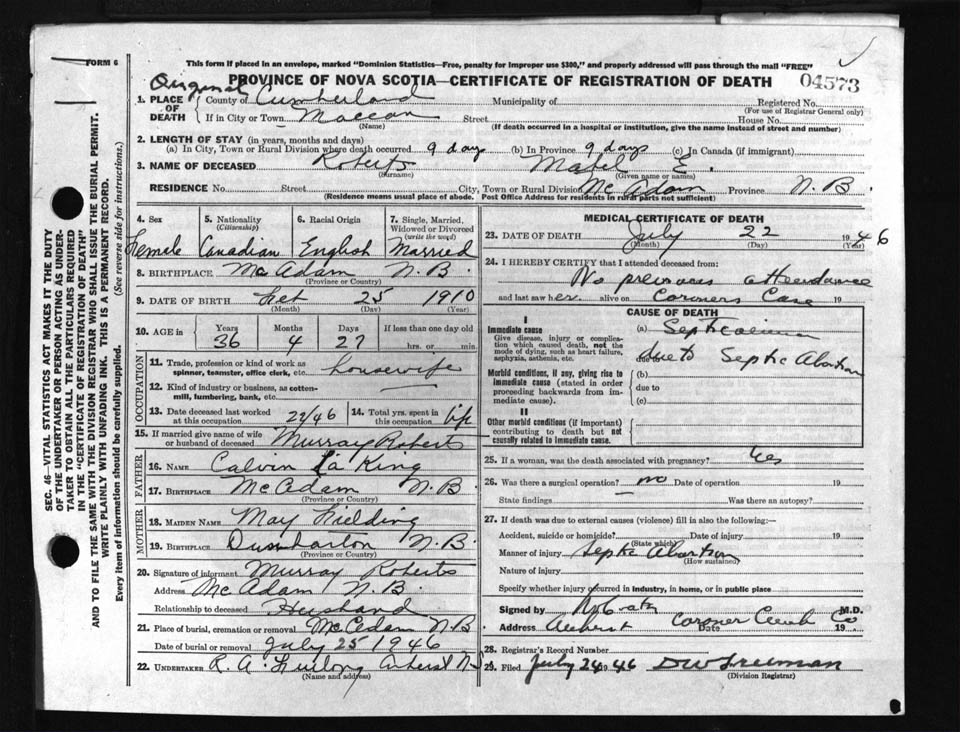 This form if placed in an envelope, marked "Dominion Statistics—Free, penalty for improper use $300," and properly addressed will pass through the mail "FREE"
FORM 6
Original
PROVINCE OF NOVA SCOTIA—CERTIFICATE OF REGISTRATION OF DEATH
04573
1. PLACE OF DEATH
County of Cumberland Municipality of Registered No.
(For use of Registrar General only)
If in City or Town Maccan Street House No.
(Name) (If death occurred in a hospital or institution, give the name instead of street and number)
2. LENGTH OF STAY (in years, months and days)
(a) In City, Town or Rural Division where death occurred 9 days (b) In Province 9 days (c) In Canada (if immigrant)
3. NAME OF DECEASED Roberts Mabel E.
(Surname) (Given name or names)
RESIDENCE No. Street City, Town or Rural Division McAdam Province N.B.
(Residence means usual place of abode. Post Office Address for residents in rural parts not sufficient)
4. Sex
Female
5. Nationality
(Citizenship)
Canadian
6. Racial Origin
English
7. Single, Married, Widowed or Divorced
(write the word)
Married
8. BIRTHPLACE McAdam N.B.
(Province or Country)
9. DATE OF BIRTH Feb 25 1910
(Month) (Day) (Year)
10. AGE in
Years Months Days If less than one day old
36 4 27 hrs. or min.
OCCUPATION
11. Trade, profession or kind of work as spinner, teamster, office clerk, etc. housewife
12. Kind of industry or business, as cotton-mill, lumbering, bank, etc. —
13. Date deceased last worked at this occupation 22/46
14. Total yrs. spent in this occupation life
15. If married give name of wife or husband of deceased Murray Roberts
FATHER
16. NAME Calvin King
17. BIRTHPLACE McAdam N.B.
(Province or Country)
MOTHER
18. MAIDEN NAME May Fielding
19. BIRTHPLACE Dumbarton N.B.
(Province or Country)
20. Signature of informant Murray Roberts
Address McAdam N.B.
Relationship to deceased Husband
21. Place of burial, cremation or removal McAdam N.B
Date of burial or removal July 25 1946
22. UNDERTAKER R. A. Furlong Amherst N.S
(Name and address)
MEDICAL CERTIFICATE OF DEATH
23. DATE OF DEATH July 22 1946
(Month) (Day) (Year)
24. I HEREBY CERTIFY that I attended deceased from:
No previous attendance
and last saw her alive on Coroners Case 19
CAUSE OF DEATH
I
Immediate cause
Give disease, injury or complication which caused death, not the mode of dying, such as heart failure, asphyxia, asthenia, etc.
(a) Septicaemia
due to Septic Abortion
Morbid conditions, if any, giving rise to immediate cause (stated in order proceeding backwards from immediate cause).
(b)
due to
(c)
II
Other morbid conditions (if important) contributing to death but not causally related to immediate cause.
25. If a woman, was the death associated with pregnancy? Yes
26. Was there a surgical operation? no Date of operation 19
State findings Was there an autopsy?
27. If death was due to external causes (violence) fill in also the following:—
Accident, suicide or homicide? Date of injury 19
(State which)
Manner of injury Septic Abortion
(How sustained)
Nature of injury
Specify whether injury occurred in industry, in home, or in public place
Signed by M.D.
Address Amherst Coroner Cumb Co
Date 19
28. Registrar's Record Number
29. Filed July 24 1946 D W Freeman
(Division Registrar)
SEC. 46—VITAL STATISTICS ACT MAKES IT THE DUTY
OF THE UNDERTAKER OR PERSON ACTING AS UNDER-
TAKER TO OBTAIN ALL THE PARTICULARS REQUIRED
IN THE "CERTIFICATE OF REGISTRATION OF DEATH"
AND TO FILE THE SAME WITH THE DIVISION REGISTRAR WHO SHALL ISSUE THE BURIAL PERMIT.
WRITE PLAINLY WITH UNFADING INK. THIS IS A PERMANENT RECORD.
Every item of information should be carefully supplied. (See reverse side for instructions.)